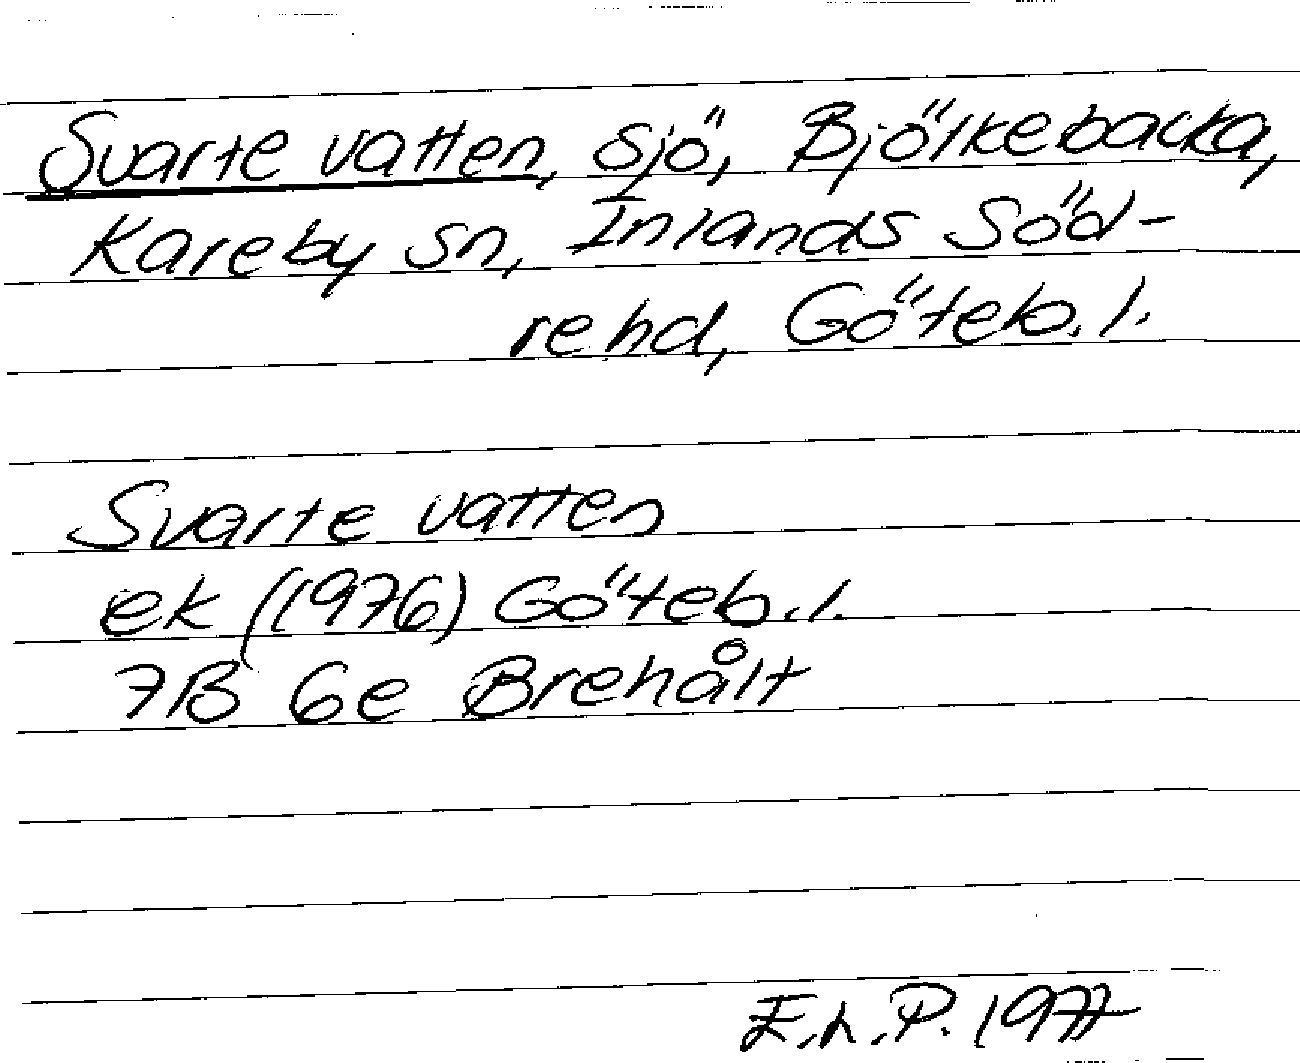 Svarte vatten, sjö, Björkebacka,
Kareby sn, Inlands Söd-
re hd, Göteb. l.
Svarte vatten
ek (1976) Göteb. l.
7B 6e Brehålt
E.L.P. 1977